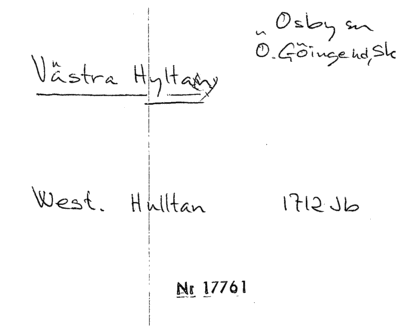 Osby sn
Ö. Göinge hd, Sk
Västra Hyltan
West. Hulltan 1712 Jb
Nr 17761